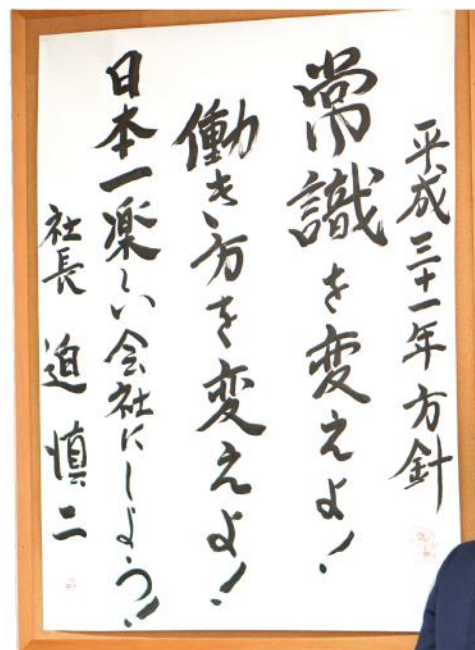 平成三十一年方針
常識を変えよ!
働き方を変えよ!
日本一楽しい会社にしよう!
社長 迫 慎二